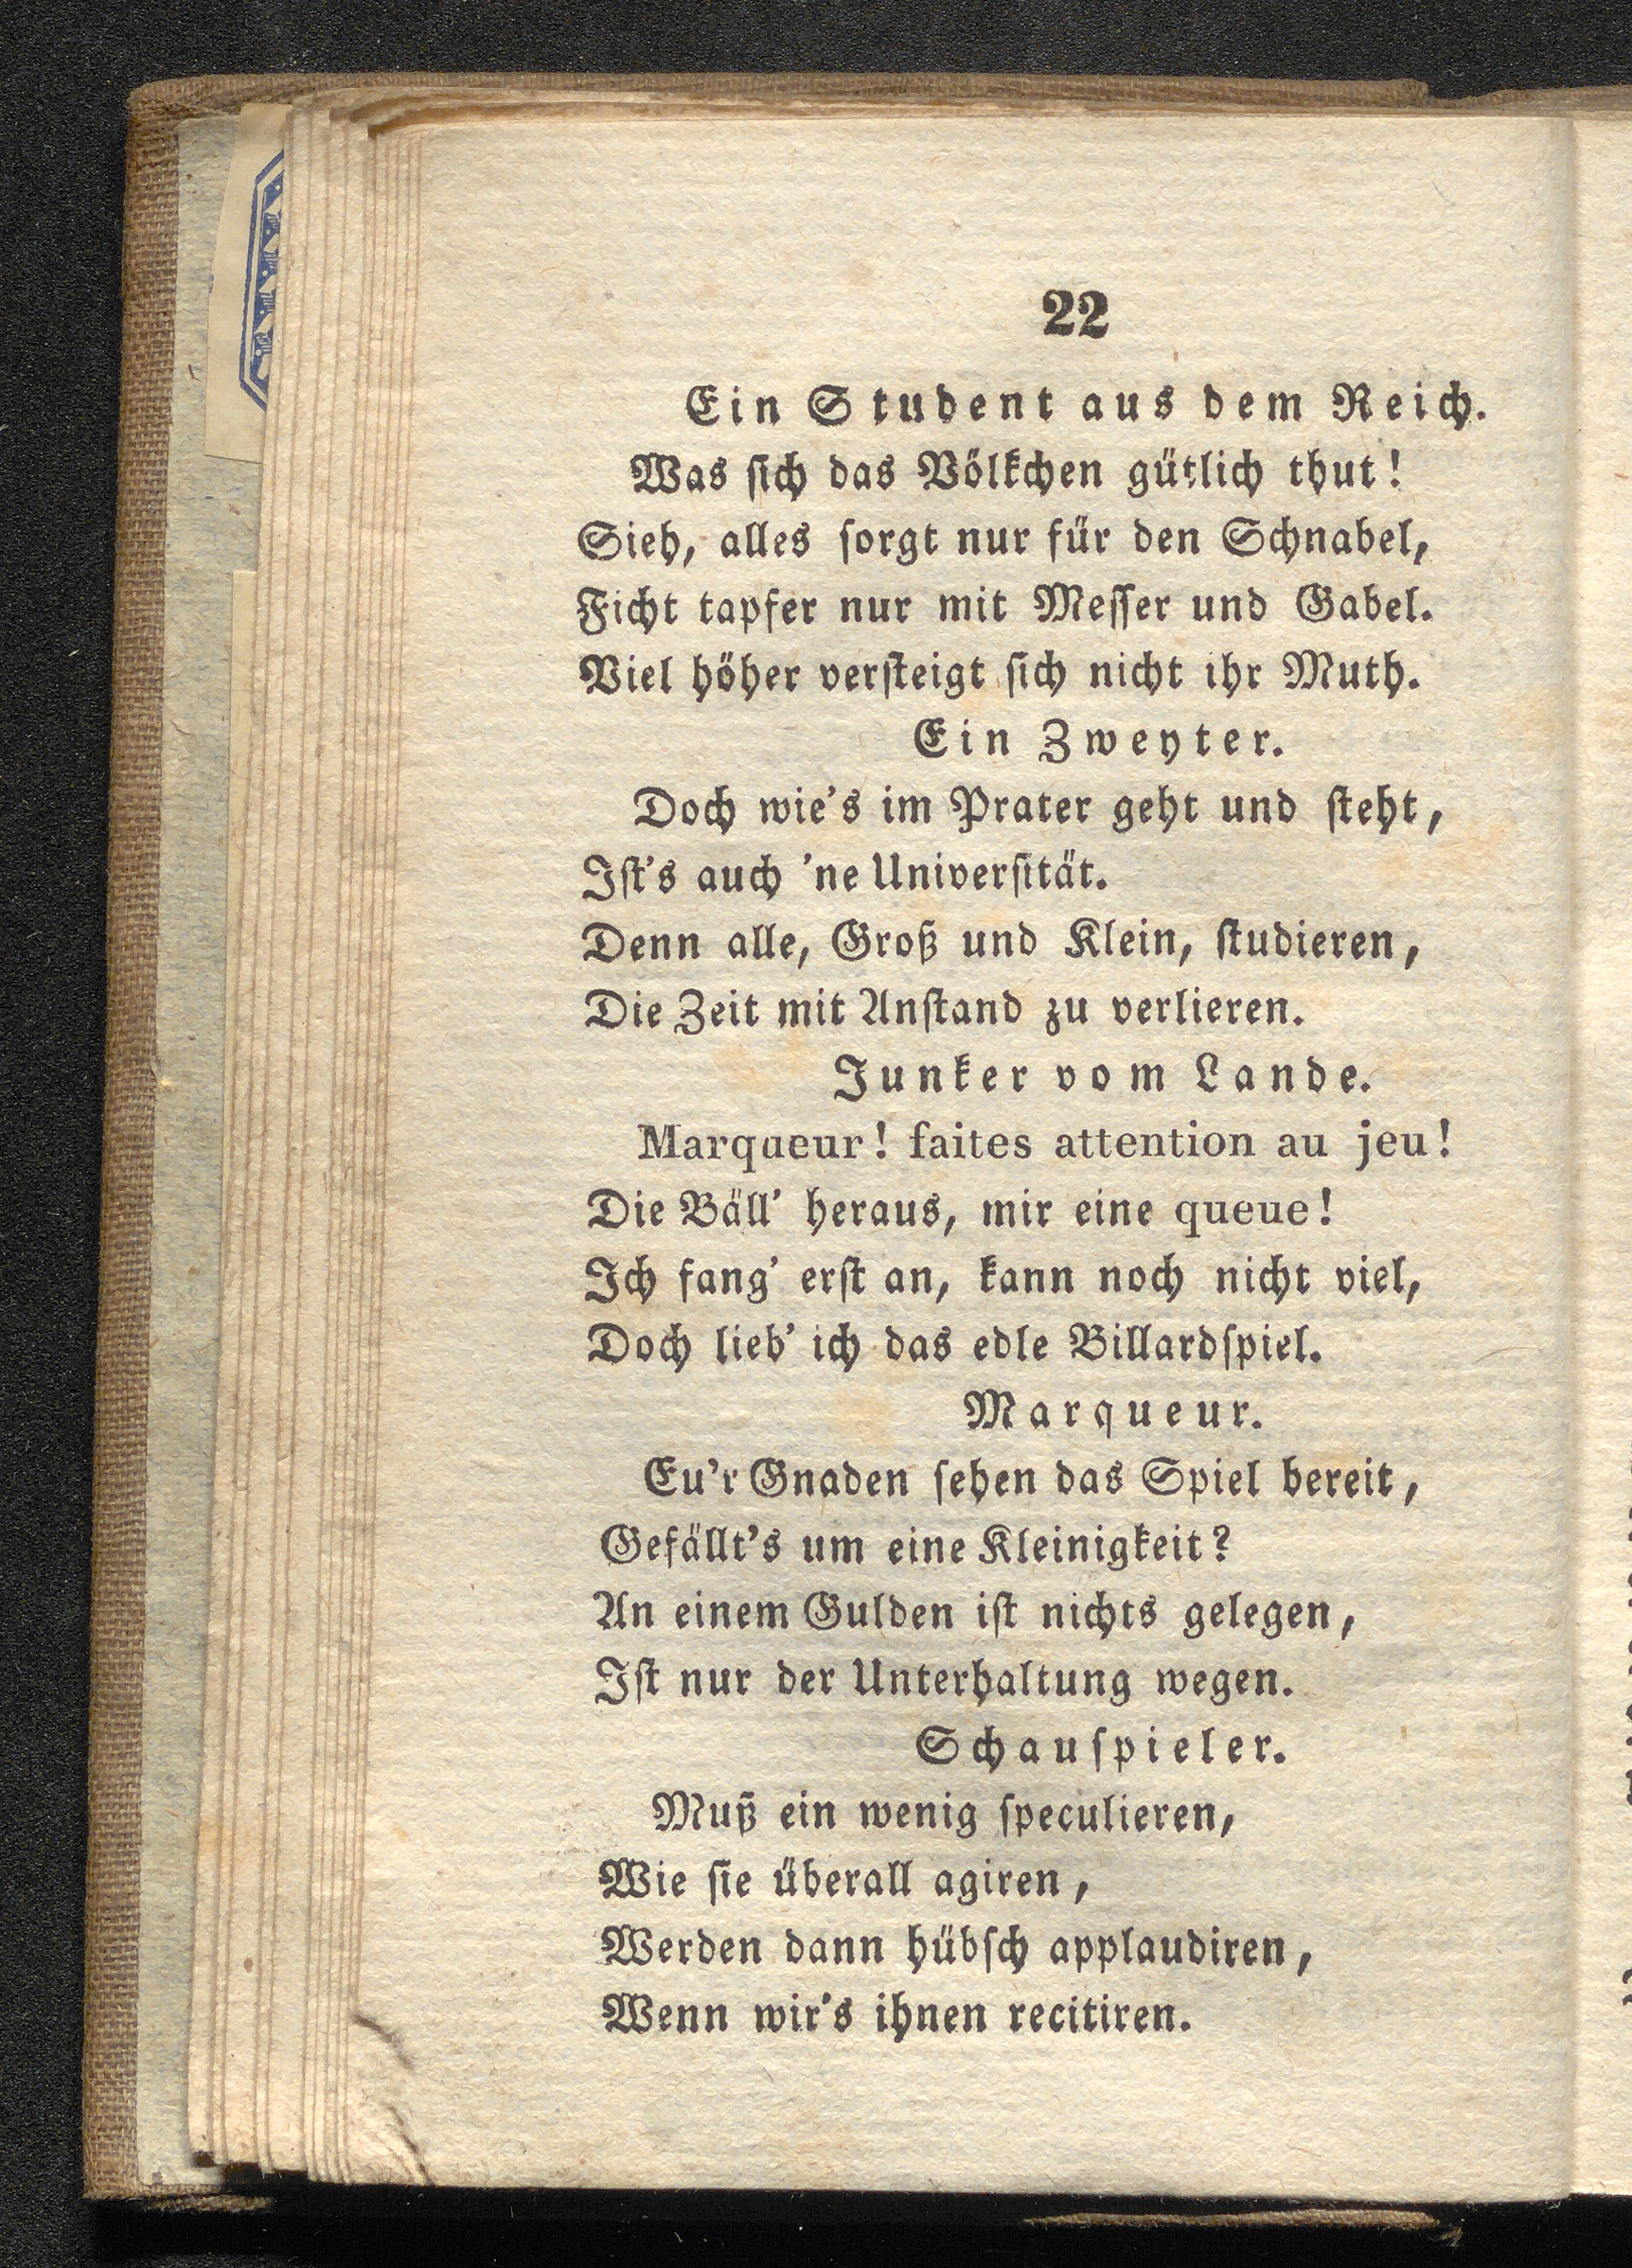 22
Ein Student aus dem Reich.
Was ſich das Völkchen gütlich thut!
Sieh, alles ſorgt nur für den Schnabel,
Ficht tapfer nur mit Meſſer und Gabel.
Viel höher verſteigt ſich nicht ihr Muth.
Ein Zweyter.
Doch wie's im Prater geht und ſteht,
Iſt's auch 'ne Univerſität.
Denn alle, Groß und Klein, ſtudieren,
Die Zeit mit Anſtand zu verlieren.
Junker vom Lande.
Marqueur! faites attention au jeu!
Die Bäll' heraus, mir eine queue!
Ich fang' erſt an, kann noch nicht viel,
Doch lieb' ich das edle Billardſpiel.
Marqueur.
Eu'r Gnaden ſehen das Spiel bereit,
Gefällt's um eine Kleinigkeit?
An einem Gulden iſt nichts gelegen,
Iſt nur der Unterhaltung wegen.
Schauſpieler.
Muß ein wenig ſpeculieren,
Wie ſie überall agiren,
Werden dann hübſch applaudiren,
Wenn wir's ihnen recitiren.